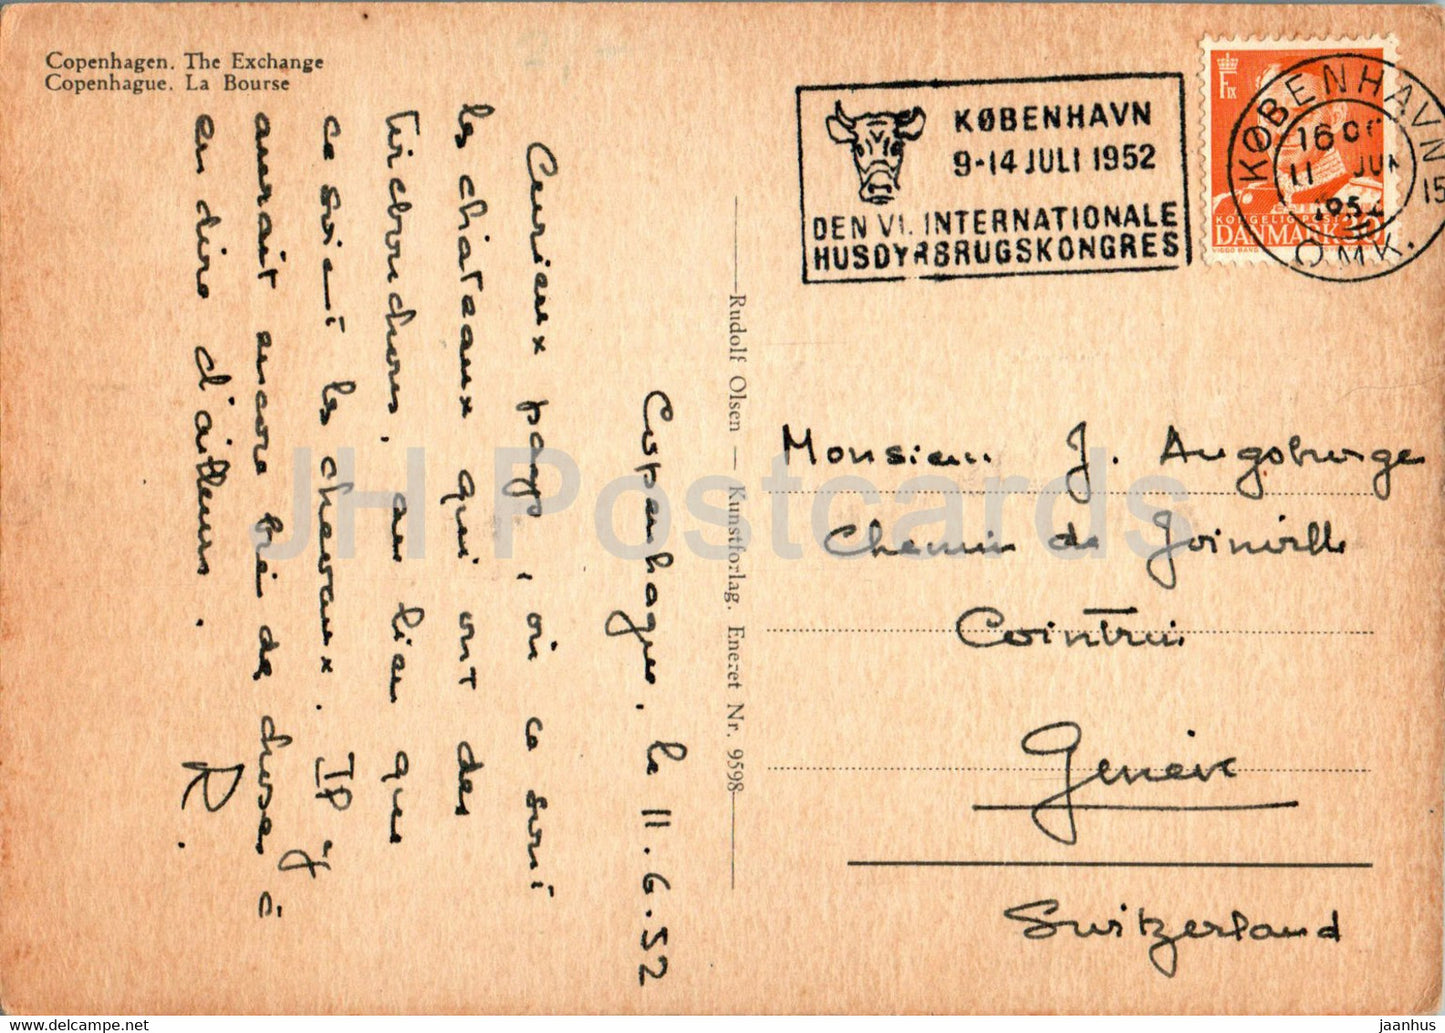 Copenhagen. The Exchange
Copenhague. La Bourse
Copenhague, le 11.6.52
Curieux pays, où ce sont
les châteaux qui ont des
tirebouchons, au lieu que
ce soient les cochons. Il y
aurait encore bien de choses à
en dire d'ailleurs.
R.
Rudolf Olsen — Kunstforlag. Eneret Nr. 9598
KØBENHAVN
9-14 JULI 1952
DEN VI. INTERNATIONALE
HUSDYRBRUGSKONGRES
F IX
KONGELIG POST
DANMARK 30
KØBENHAVN
16
11 JUN
1952
15
OMK.
Monsieur J. Augsburger
Chemin de Joinville
Cointrin
Genève
Switzerland
JH Postcards
jaanhus.com